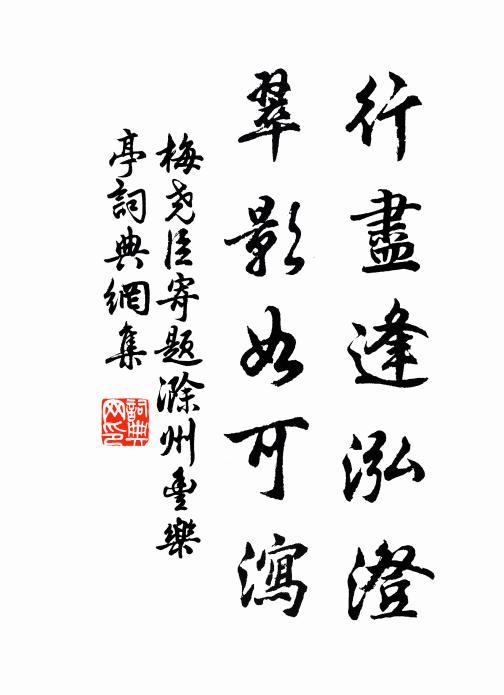 行盡逢泓澄
翠影如可瀉
梅堯臣寄題滁州豐樂
亭詞典網集
詞典
网印